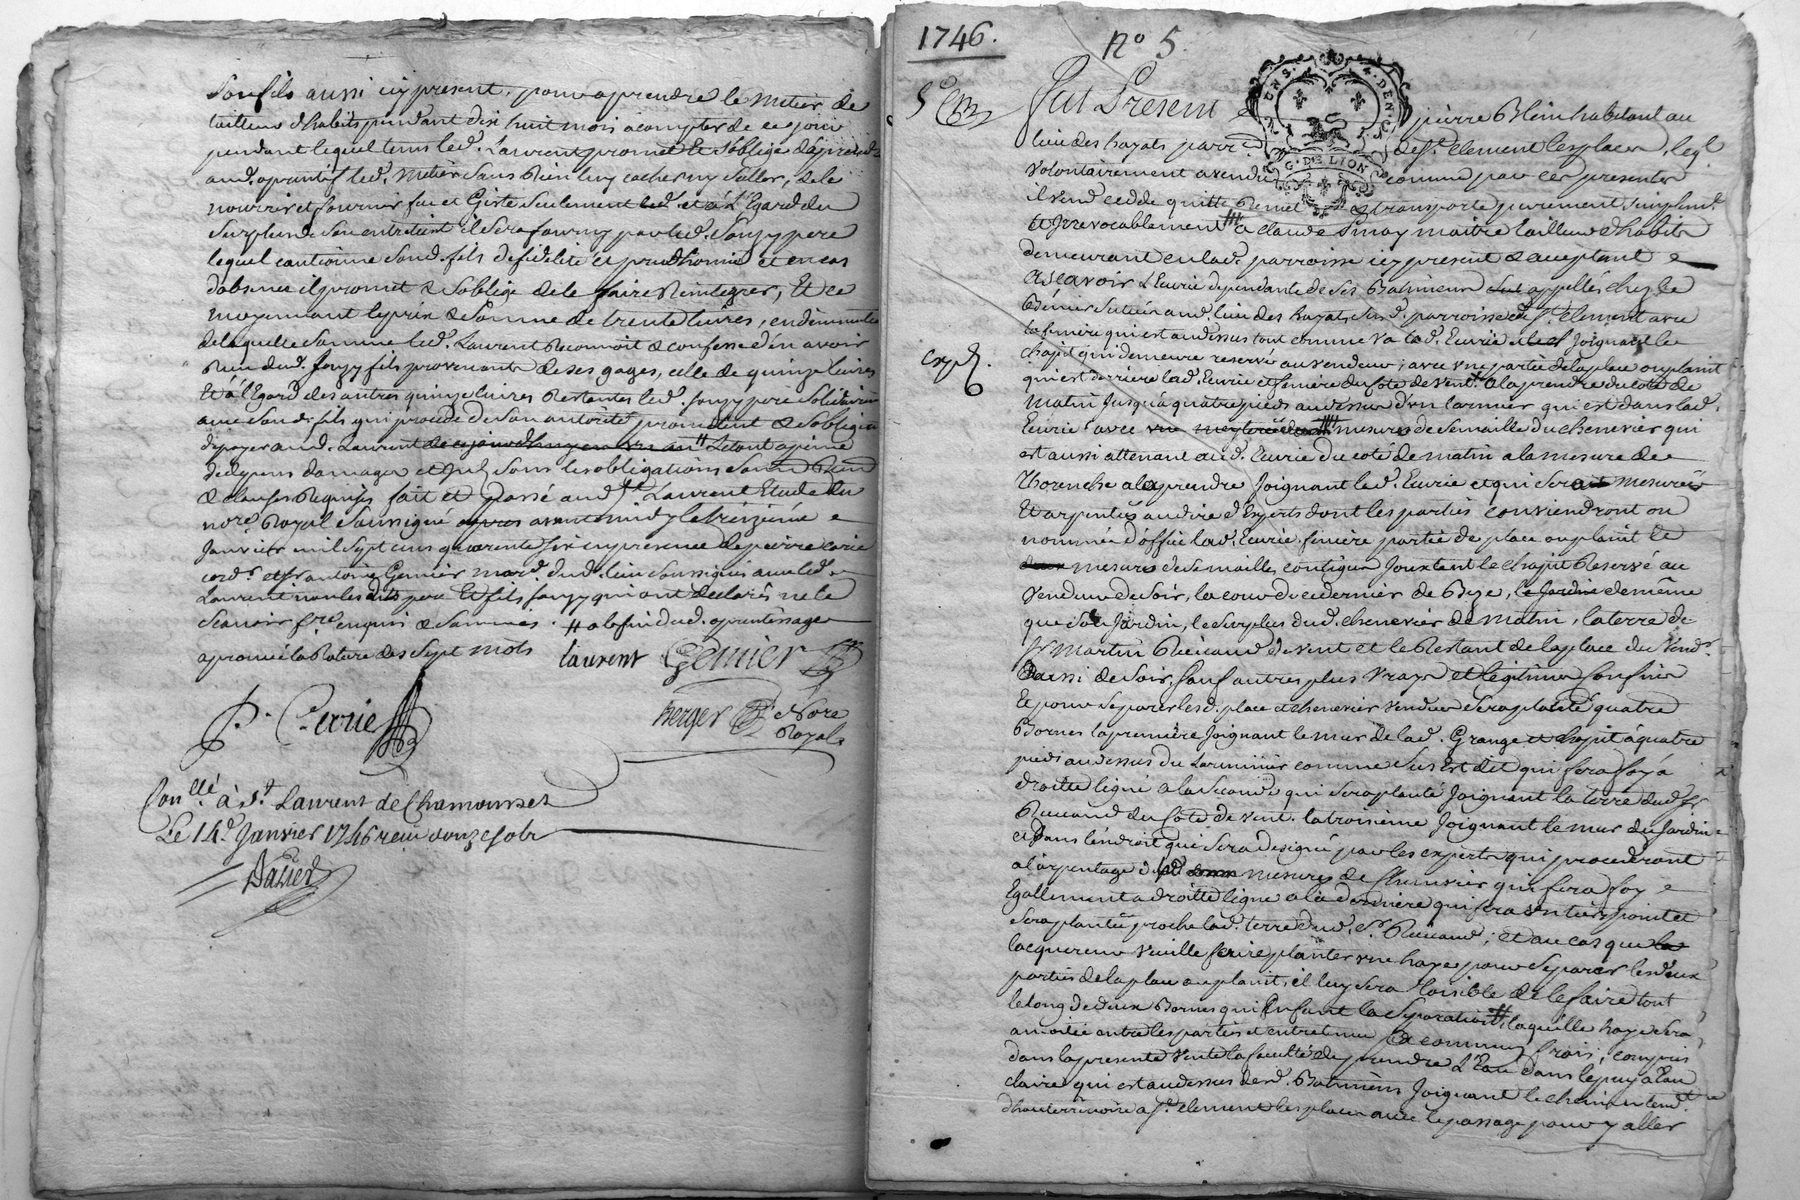 Son fils aussi icy present, pour aprendre le metier de
tailleur d'habits pendant dix huit mois a compter de ce jour
pendant lequel tems led. Laurent promet et s'oblige d'aprendre
aud. aprentif led. metier sans rien luy cacher ny celler, de le
nourrir et fournir feu et Giste seulement et a l'Egard du
Surplus de son entretient il sera fourny par led. Jouzy pere
lequel cautionne sond. fils de fidelité et prudhomie et en cas
d'absence il promet & s'oblige de le faire Reintegrer, Et ce
moyennant le prix & somme de trente livres, en diminution
de laquelle somme led. Laurent Reconnoit & confesse d'en avoir
Reçu dud. Jouzy fils provenants de ses gages, celle de quinze livres
Et à l'Egard des autres quinze livres Restantes led. Jouzy pere solidairem
avec sond. fils qui procede de son autorité promettent & s'obligent
de payer aud. Laurent # Le tout a peine
de depens damages et sous les obligations
& clauses Requises fait et passé aud. St. Laurent Etude du
nore. Royal soussigné avant midy le treizieme
Janvier mil sept cens quarente six en presence de pierre corie
cord. et sr antoine Genier march. dud. lieu soussignés avec led.
Laurent non lesdits pere et fils Jouzy qui ont declarés ne le
scavoir fre enquis & sommés. # a la fin dud. aprentissage
aprouvé la Rature des sept mots laurent Genier
P. Corie
berger Nore
Royal
Conllé. à St. Laurent de Chamousset
Le 14e. Janvier 1746 reçu douze sols
Dazier
1746.
no 5
5e
Fut Present pierre Blein habitant au
lieu des hayats parr. de St. Clement les places, leql
volontairement a vendu comme par ces presentes
il vend cedde quitte Remet & transporte purement, simplemt.
et Irrevocablement a claude Simay maitre tailleur d'habits
demeurant en lad. parroisse icy present & acceptant
Ascavoir L'Ecurie dependante de ses Batimens appellés chez le
Benier scitués aud. lieu des hayats susd. parroisse de St. Clement avec
la feniere qui est au dessus tout comme va lad. Ecurie et Joignant le
chapit qui demeure reservé au vendeur; avec une partie de la place ou plaint
qui est derriere lad. Ecurie et feniere du coté de vent. a la prendre du coté de
matin Jusqu'a quatre pieds au dessus d'un larmier qui est dans lad.
Ecurie avec mesures de semaille du chenevier qui
est aussi attenant a lad. Ecurie du coté de matin a la mesure de
Thorenche a la prendre Joignant led. Ecurie et qui sera mesurée
Et arpentée au dire d'Experts dont les parties conviendront ou
nommés d'office lad. Ecurie feniere partie de place ou plaint le
mesures de semailles contigus Jouxtent le chapit Reservé au
vendeur de soir, la cour de ce dernier de Bize, le Jardin de même
que sol Jardin, le surplus dud. chenevier de matin, la terre de
Sr martin Reinaud de vent et le Restant de la place du vendr.
aussi de soir, sauf autres plus vrays et legitimes confins
Et pour separer lesd. place et chenevier vendus sera planté quatre
Bornes la premiere Joignant le mur de lad. Grange et chapit à quatre
pieds au dessus du Larmier comme sus Est dit qui fera foy a
droitte ligne a la seconde qui sera plantée Joignant la terre dud. Sr
Reinaud du coté de vent. la troisieme Joignant le mur du Jardin
et dans l'endroit qui sera designé par les experts qui procederont
a l'arpentage desd. mesures de Chenevier qui fera foy
Egallement a droitte ligne a la derniere qui
sera plantée proche lad. terre dud. Sr. Reinaud; et au cas que
lacquereur veuille faire planter une haye pour separer les deux
parties de la place ou plaint, il luy sera loisible de le faire tout
le long de deux Bornes qui en font la separation # laquelle haye sera
amoitié entre les parties et entretenue a communs frais, compris
dans la presente vente la faculté de prendre L'Eau dans le puy a l'eau
claire qui est au dessus desd. Batimens Joignant le chemin tend.
d'hauterivoire a St. Clement les places avec le passage pour y aller
EXp.
G. DE LION